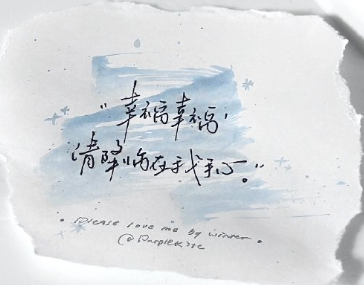 “幸福幸福，
请降临在我手心。”
Please love me by winter